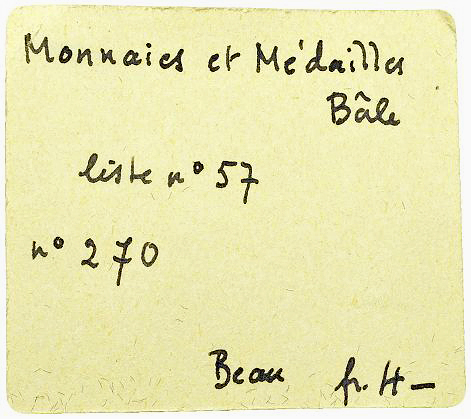 Monnaies et Médailles
Bâle
liste n° 57
n° 270
Beau fr. 4—